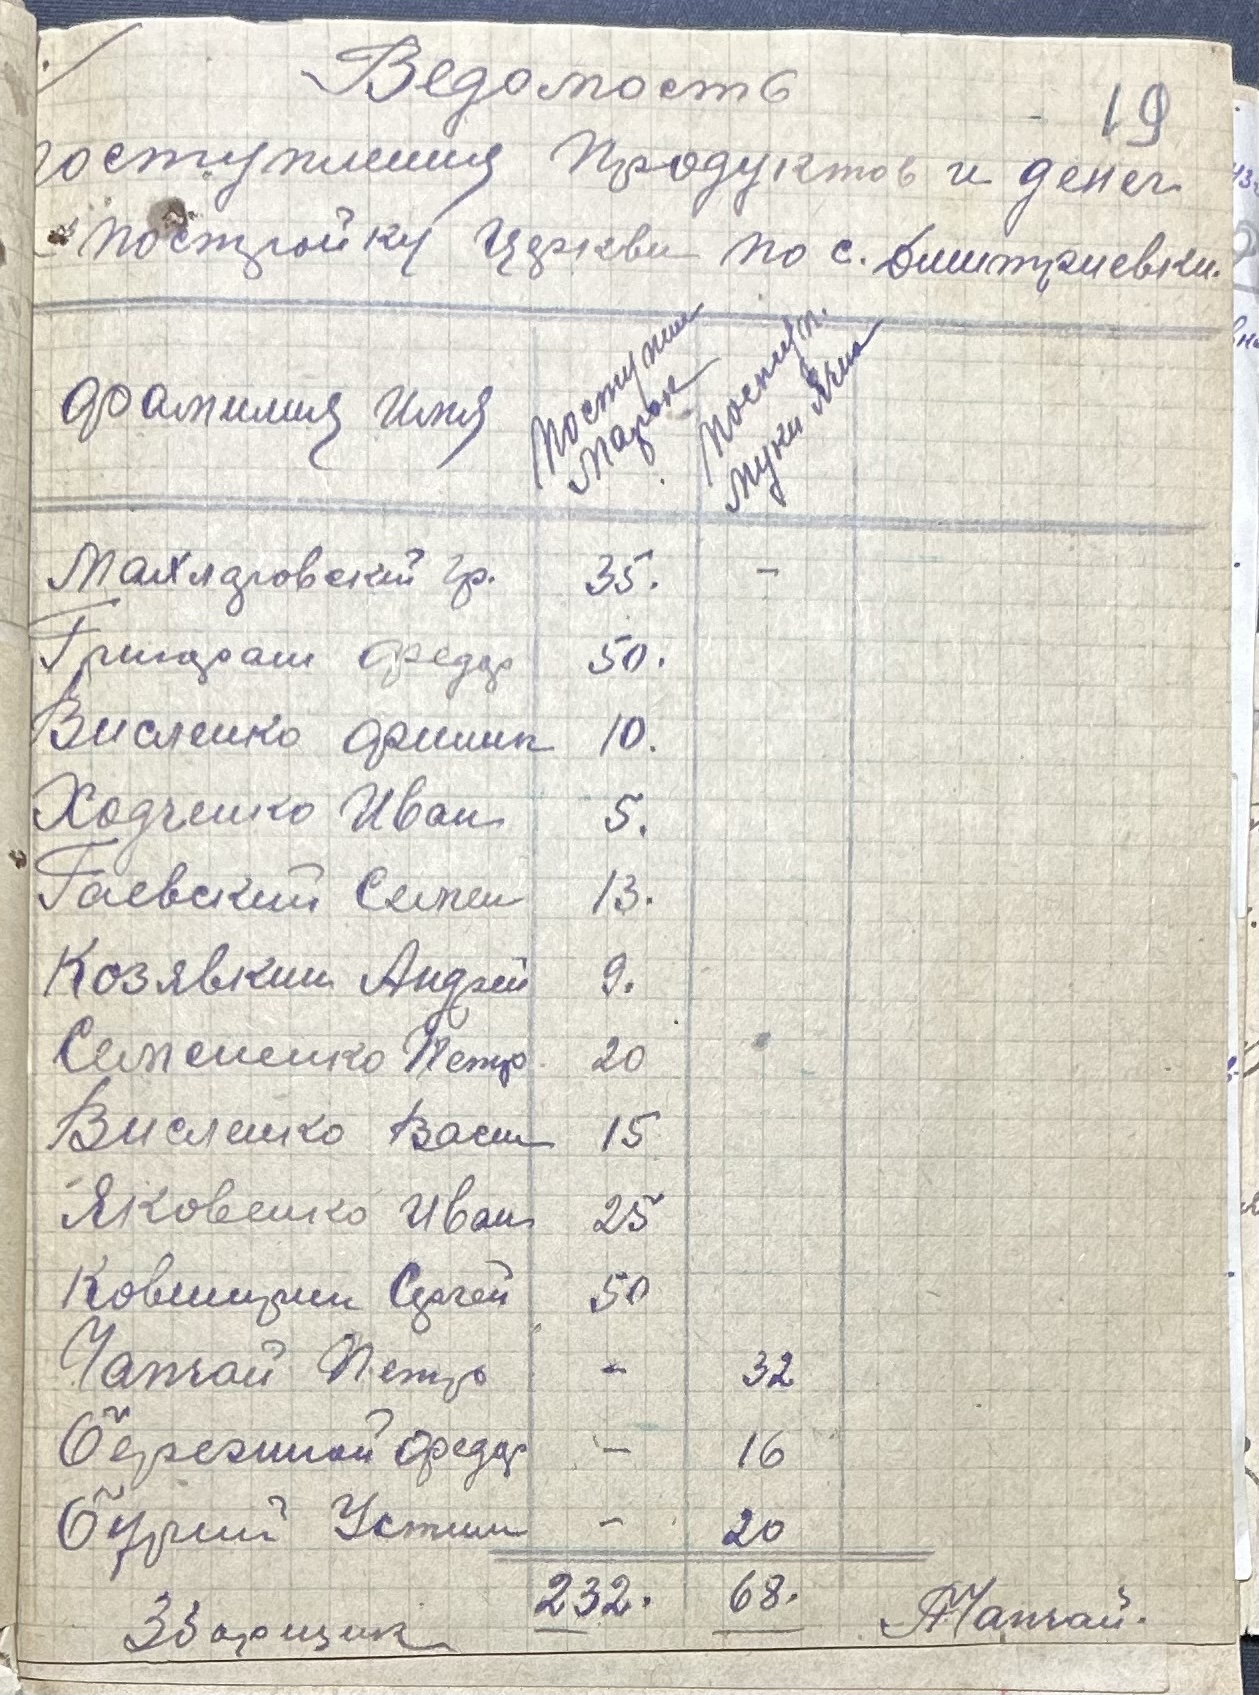 Ведомость
19
поступления Продуктов и денег
постройку Церкви по с. Дмитриевки.
Фамилия Имя
Поступили Марок
Поступл. Муки Ячм
Гр.
Григораш Федор 50.
Висленко Филип 10.
Ходченко Иван 5.
Гаевский Семен 13.
Козявкин Андрей 9.
Семененко Петро 20
Висленко Васил 15
Яковенко Иван 25
Сергей 50
Чапчай Петро - 32
Бережной Федор - 16
Бурий Устим - 20
232. 68.
Зборщик Чапчай.